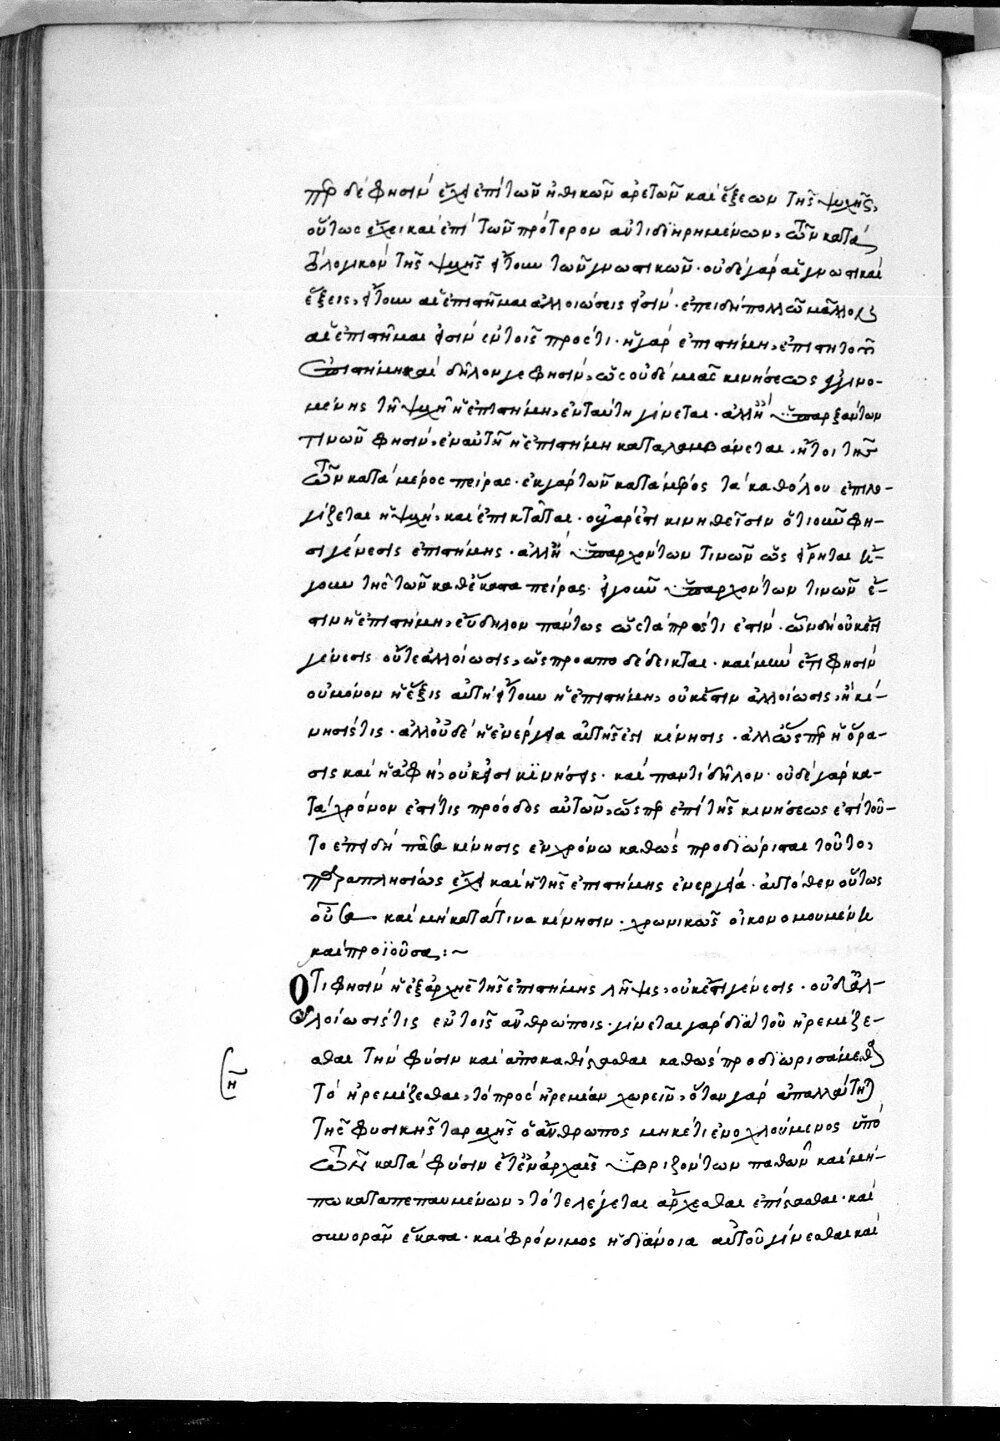 περ δέ φησιν ἔχει ἐπὶ τῶν ἠθικῶν ἀρετῶν καὶ ἕξεων τῆς ψυχῆς,
οὕτως ἔχει καὶ ἐπὶ τῶν πρότερον ἀντιδιῃρημένων, τῶν κατὰ
τὸ λογικὸν τῆς ψυχῆς ἤγουν τῶν γνωστικῶν· οὐδὲ γὰρ αἱ γνωστικαὶ
ἕξεις, ἤγουν αἱ ἐπιστῆμαι ἀλλοιώσεις εἰσίν· ἐπειδὴ πολλῷ μᾶλλον
αἱ ἐπιστῆμαι εἰσὶν ἐν τοῖς πρός τι· ἡ γὰρ ἐπιστήμη, ἐπιστητοῦ
ἐπιστήμη καὶ δῆλόν γε φησὶν, ὡς οὐδὲ μιᾶς κινήσεως γινο-
μένης τῇ ψυχῇ ἡ ἐπιστήμη, ἐν ταύτῃ γίνεται· ἀλλ' ἢ ὑπαρξάντων
τινῶν φησιν, ἐν αὐτῇ ἡ ἐπιστήμη καταλαμβάνεται, ἤτοι τῆς
τῶν κατὰ μέρος πείρας· ἐκ γὰρ τῶν κατὰ μέρος τὰ καθόλου ἐπιλο-
γίζεται ἡ ψυχή, καὶ ἐπίσταται· οὐ γάρ ἐστι κινηθεῖσιν ὁτιοῦν φη-
σι γένεσις ἐπιστήμης· ἀλλ' ἢ ὑπαρχόντων τινῶν ὡς εἴρηται ἤ-
γουν τῆς τῶν καθέκαστα πείρας· εἰ γοῦν ὑπαρχόντων τινῶν ἔ-
στιν ἡ ἐπιστήμη, εὔδηλον πάντως ὡς τὰ πρός τι ἐστίν· ὧν δὴ οὐκ ἔστι
γένεσις οὔτε ἀλλοίωσις, ὡς προαποδέδεικται· καὶ μὴν ἔτι φησὶν
οὐ μόνον ἡ ἕξις αὐτὴ ἤγουν ἡ ἐπιστήμη, οὐκ ἔστιν ἀλλοίωσις, ἢ κί-
νησίς τις· ἀλλ' οὐδὲ ἡ ἐνέργεια αὐτῆς ἐστι κίνησις· ἀλλ' ὥσπερ ἡ ὅρα-
σις καὶ ἡ ἁφή, οὐκ εἰσὶ κινήσεις· καὶ παντὶ δῆλον· οὐδὲ γὰρ κα-
τὰ χρόνον ἐστί τις πρόοδος αὐτῶν, ὥσπερ ἐπὶ τῆς κινήσεως ἐστὶ τοῦ-
το ἐπειδὴ πᾶσα κίνησις ἐν χρόνω καθὼς προδιώρισται τοῦτο,
παραπλησίως ἔχει καὶ ἡ τῆς ἐπιστήμης ἐνέργεια· αὐτόθεν οὕτως
οὖσα καὶ μὴ κατά τινα κίνησιν· χρονικῶς οἰκονομουμένη
καὶ προϊοῦσα:~
Ὅτι φησὶν ἡ ἐξαρχῆς τῆς ἐπιστήμης λῆψις, οὐκ ἔστι γένεσις· οὐδὲ ἀλ-
λοίωσίς τις ἐν τοῖς ἀνθρώποις· γίνεται γὰρ διὰ τοῦ ἠρεμίζε-
σθαι τὴν φύσιν καὶ ἀποκαθίστασθαι καθὼς προδιωρισάμεθα
Τὸ ἠρεμίζεσθαι, τὸ πρὸς ἠρεμίαν χωρεῖν, ὅταν γὰρ ἀπαλλάττηται
τῆς φυσικῆς ταραχῆς ὁ ἄνθρωπος μηκέτι ἐνοχλούμενος ὑπὸ
τῶν κατὰ φύσιν ἔτι ἐν ἀρχαῖς ὑβριζόντων παθῶν καὶ μή-
πω καταπεπαυμένων, τότε λέγεται ἄρχεσθαι ἐπίστασθαι· καὶ
συνορᾶν ἕκαστα· καὶ φρόνιμος ἡ διάνοια αὐτοῦ γίνεσθαι καὶ
η